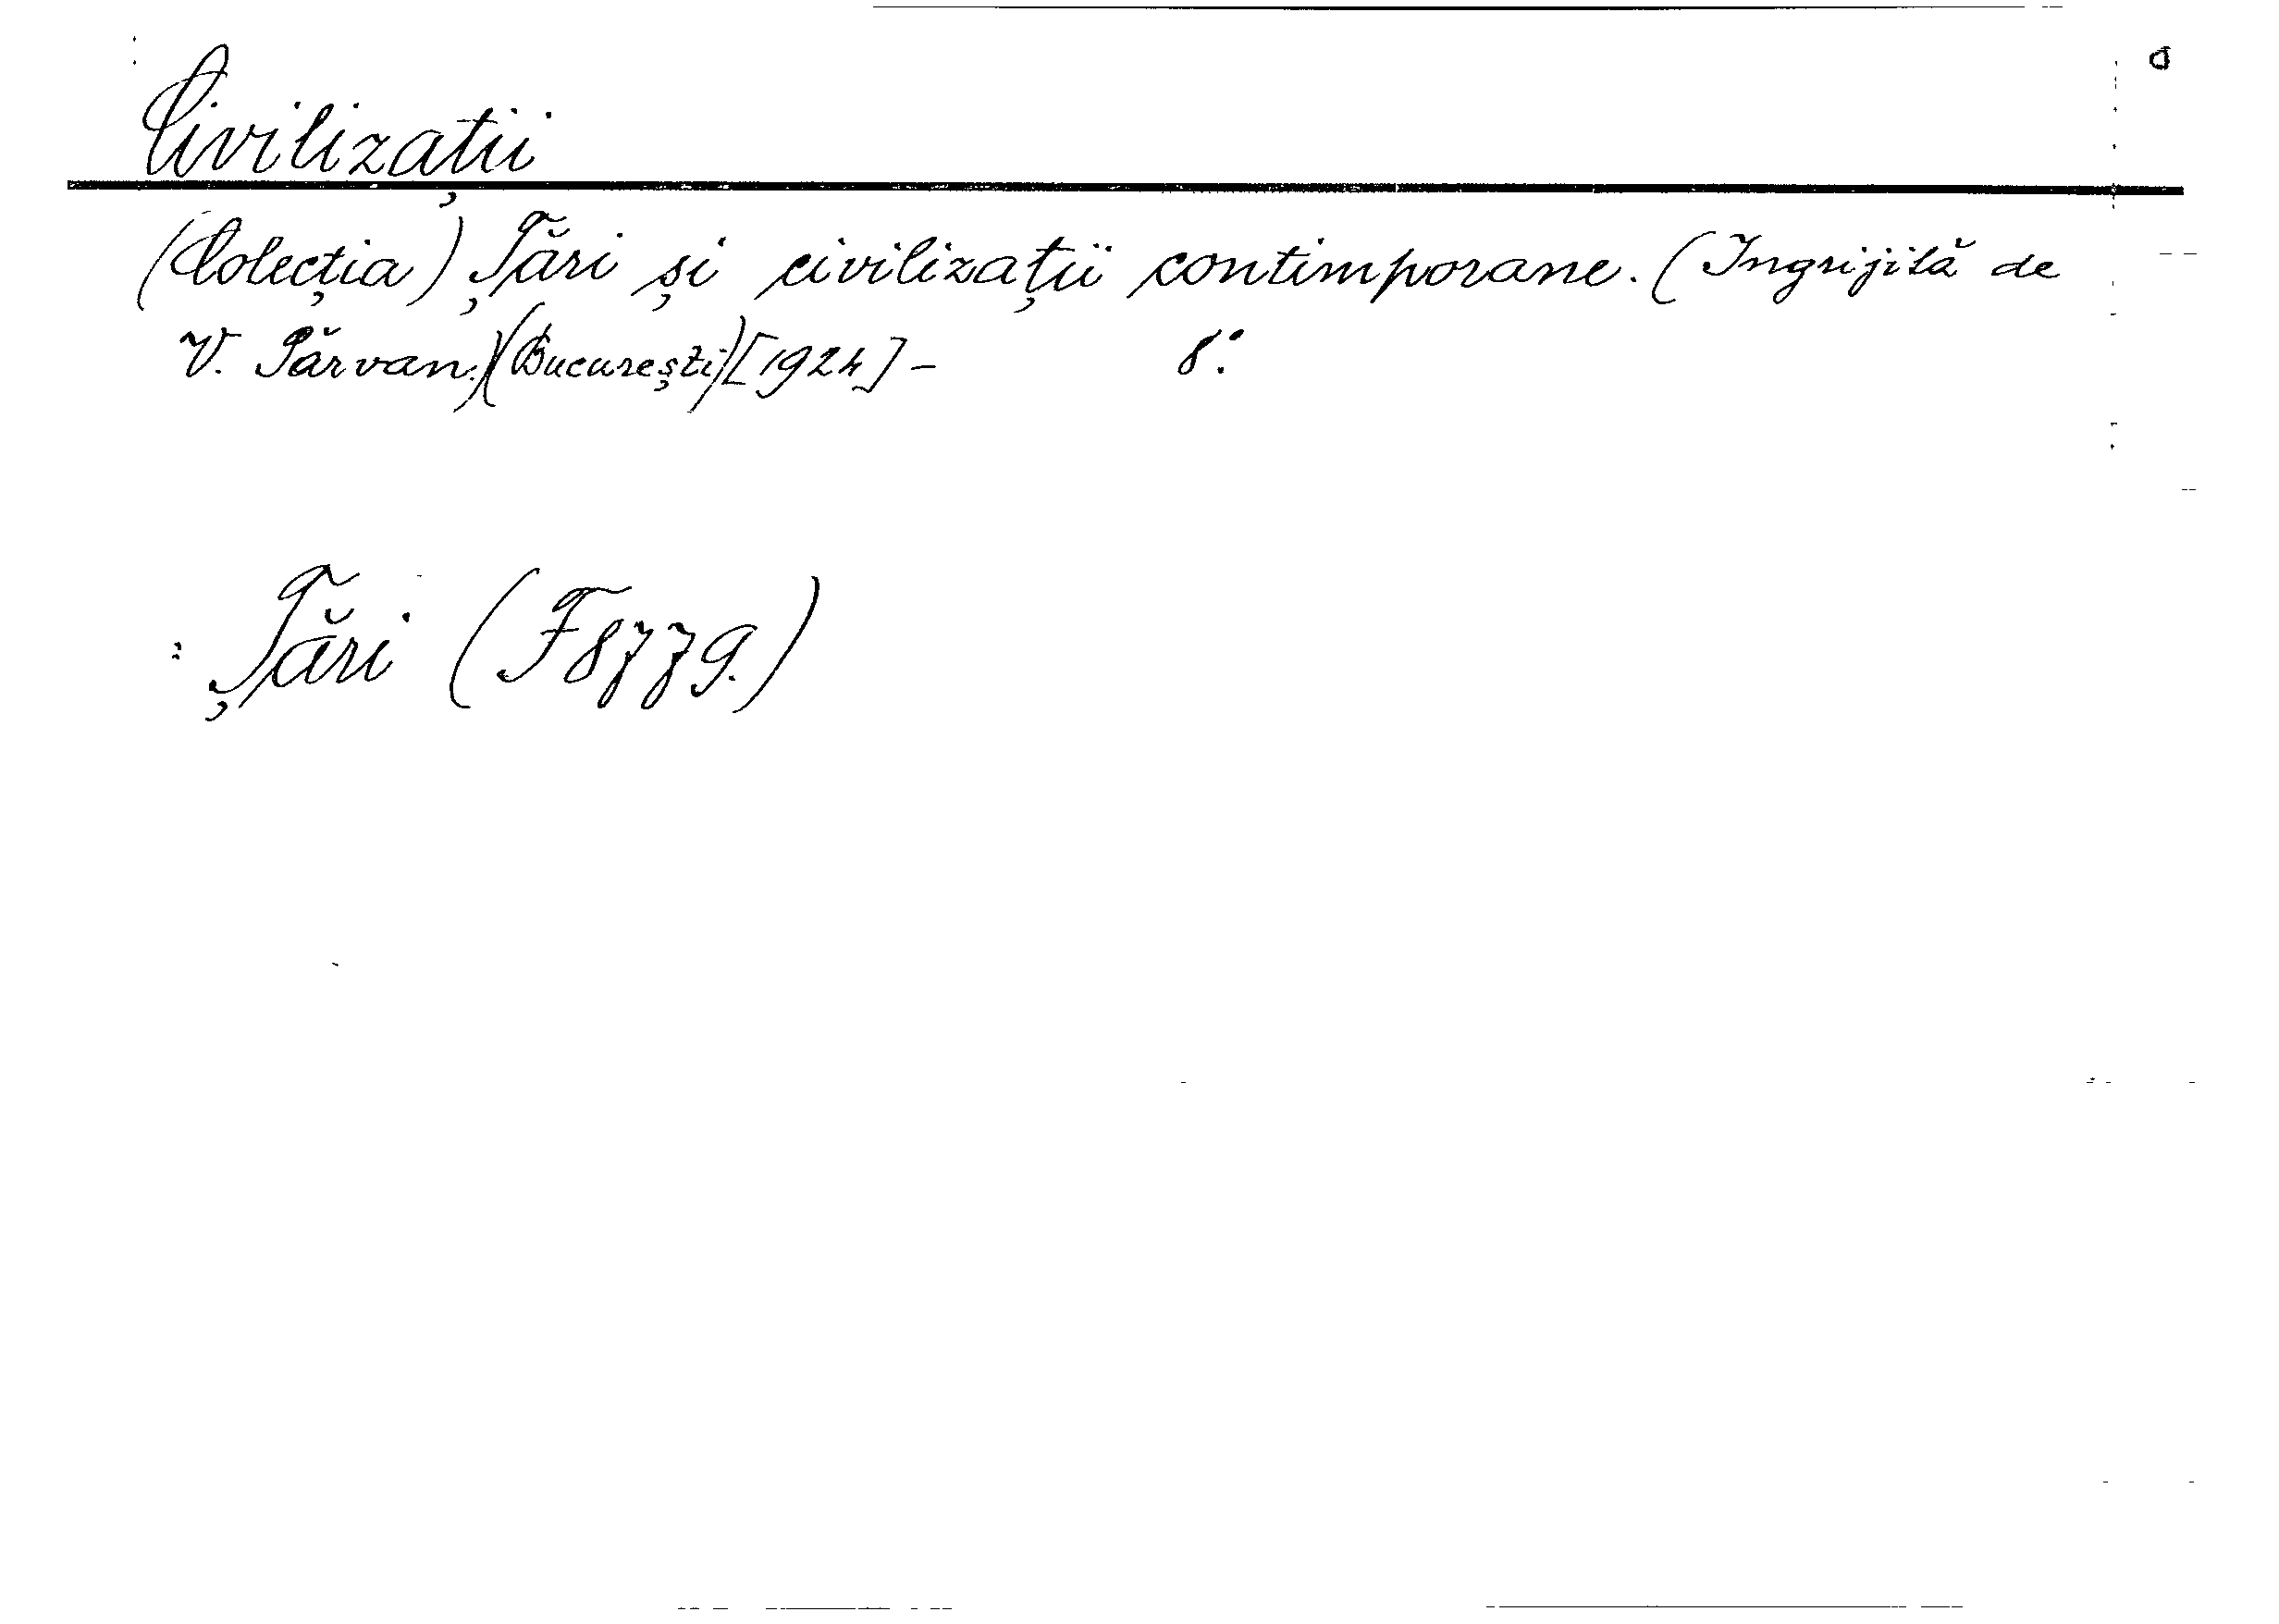 Civilizații
(Colecția) Țări și civilizații contimporane. (Ingrijită de
V. Părvan.) (București) [1924] - 8°.
: Țări (F8779.)